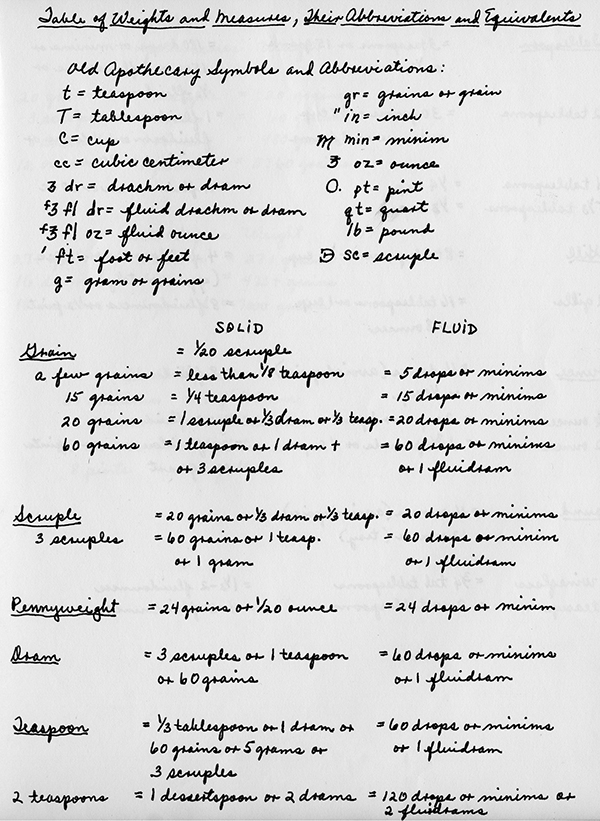 Table of Weights and Measures, Their Abbreviations and Equivalents
Old Apothecary Symbols and Abbreviations:
t = teaspoon
T = tablespoon
C = cup
cc = cubic centimeter
ʒ dr = drachm or dram
fʒ fl dr = fluid drachm or dram
f℥ fl oz = fluid ounce
' ft = foot or feet
g = gram or grains
gr = grains or grain
" in = inch
♏ min = minim
℥ oz = ounce
O. pt = pint
qt = quart
lb = pound
℈ sc = scruple
SOLID FLUID
Grain = 1/20 scruple
a few grains = less than 1/8 teaspoon = 5 drops or minims
15 grains = 1/4 teaspoon = 15 drops or minims
20 grains = 1 scruple or 1/3 dram or 1/3 teasp. = 20 drops or minims
60 grains = 1 teaspoon or 1 dram + = 60 drops or minims
or 3 scruples or 1 fluidram
Scruple = 20 grains or 1/3 dram or 1/3 teasp. = 20 drops or minims
3 scruples = 60 grains or 1 teasp. = 60 drops or minim
or 1 gram or 1 fluidram
Pennyweight = 24 grains or 1/20 ounce = 24 drops or minim
Dram = 3 scruples or 1 teaspoon = 60 drops or minims
or 60 grains or 1 fluidram
Teaspoon = 1/3 tablespoon or 1 dram or = 60 drops or minims
60 grains or 5 grams or or 1 fluidram
3 scruples
2 teaspoons = 1 dessertspoon or 2 drams = 120 drops or minims or
2 fluidrams